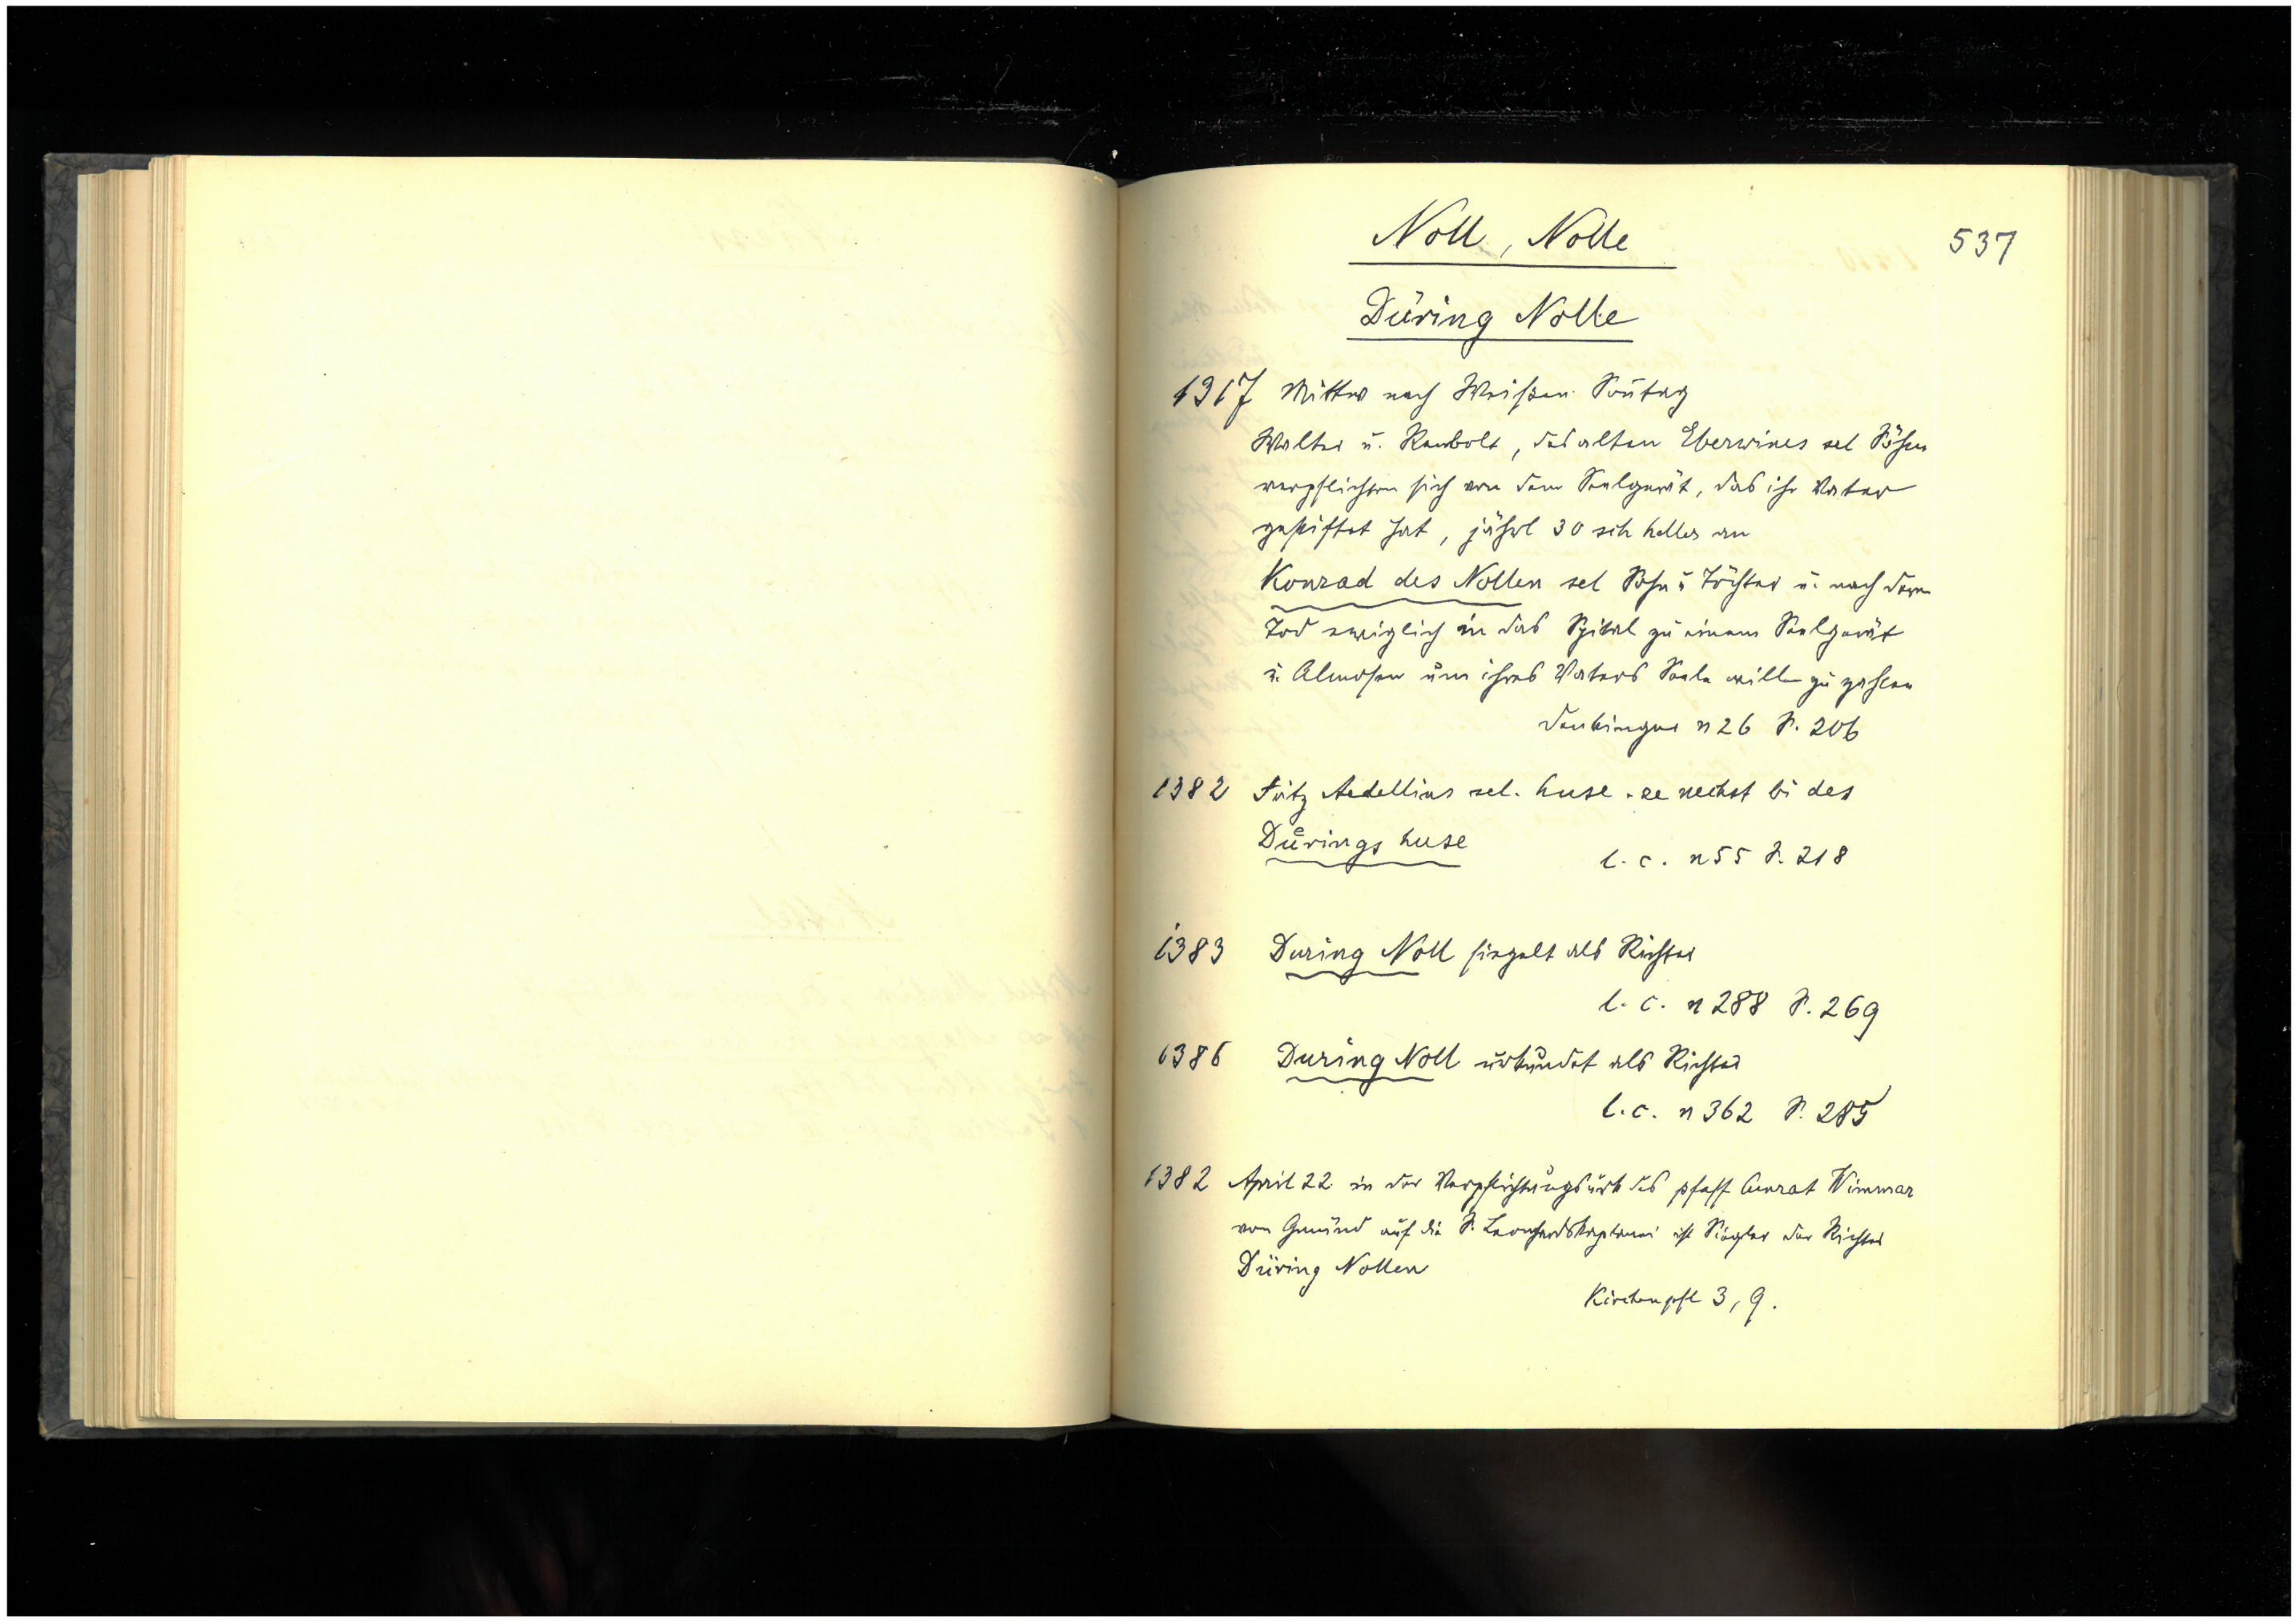 Noll, Nolle
537
Düring Nolle
1317 Mittw nach Weißen Sonntag
Walter u. Renbolt, des alten Eberwines sel Söhne
verpflichten sich von dem Seelgerät, das ihr Vater
gestiftet hat, jährl 30 sch heller an
Konrad des Nollen sel Sohn u Töchter u. nach deren
Tod ewiglich in das Spital zu einem Seelgerät
u. Almosen um ihres Vaters Seele willen zu zahlen
Denkinger n 26 S. 206
1382 Fritz Aedellins sel. huse ze nechst bi des
Důrings huse
l. c. n 55 S. 218
1383 During Noll siegelt als Richter
l. c. n 288 S. 269
1386 During Noll urkundet als Richter
l. c. n 362 S. 285
1382 April 22 in der Verpflichtungsurk des pfaff Cunrat Wimmar
von Gmünd auf die S. Leonhardskaplanei ist Siegler der Richter
Düring Nollen
Kirchenpfl 3, 9.